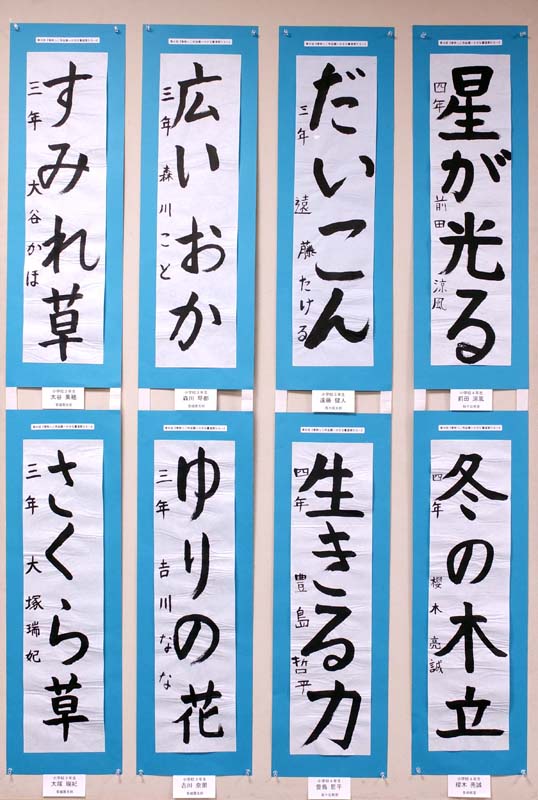 星が光る
四年 前田涼風
小学校4年生
前田 涼風
だいこん
三年 遠藤たける
小学校3年生
遠藤 健人
広いおか
三年 森川こと
小学校3年生
森川 琴都
すみれ草
三年 大谷かほ
小学校3年生
大谷 果穂
冬の木立
四年 櫻木亮誠
小学校4年生
櫻木 亮誠
生きる力
四年 豊島哲平
小学校4年生
豊島 哲平
ゆりの花
三年 吉川なな
小学校3年生
吉川 奈那
さくら草
三年 大塚瑞妃
小学校3年生
大塚 瑞妃